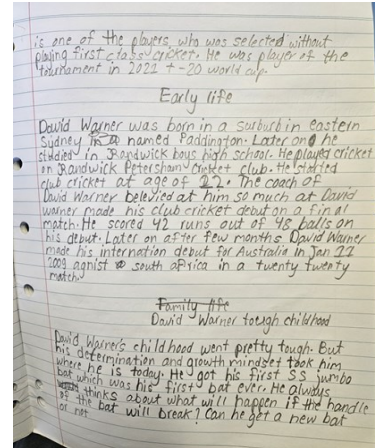 is one of the players who was selected without
playing first class cricket. He was player of the
tournament in 2021 t-20 world cup.
Early life
David Warner was born in a surburb in eastern
Sydney in a named Paddington. Later on he
studied in Randwick boys high school. He played cricket
on Randwick Petersham Cricket club. He started
club cricket at age of
The coach of
David Warner belevied at him so much at David
warner made his club cricket debut on a final
match. He scored 42 runs out of 48 balls on
his debut. Later on after few months David Warner
made his internation debut for Australia in Jan 11
2009 agnist south africa in a twenty twenty
match.
Family life
David Warner tough childhood
David Warner's childhood went pretty tough. But
his determination and growth mindset took him
where he is today. He got his first SS jumbo
bat which was his first bat ever. He always
thinks about what will happen if the handle
of the bat will break? Can he get a new bat
or not